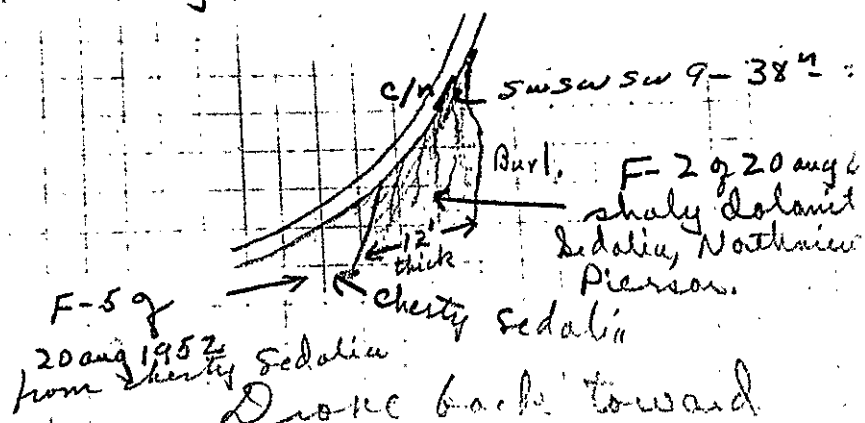 c/n
SW SW SW 9-38N
Burl.
F-2 of 20 aug
shaly dolomit
Sedalia, Northview
Pierson.
12'
thick
Cherty Sedalia
F-5 of
20 aug 1952
from cherty Sedalia
Drove back toward